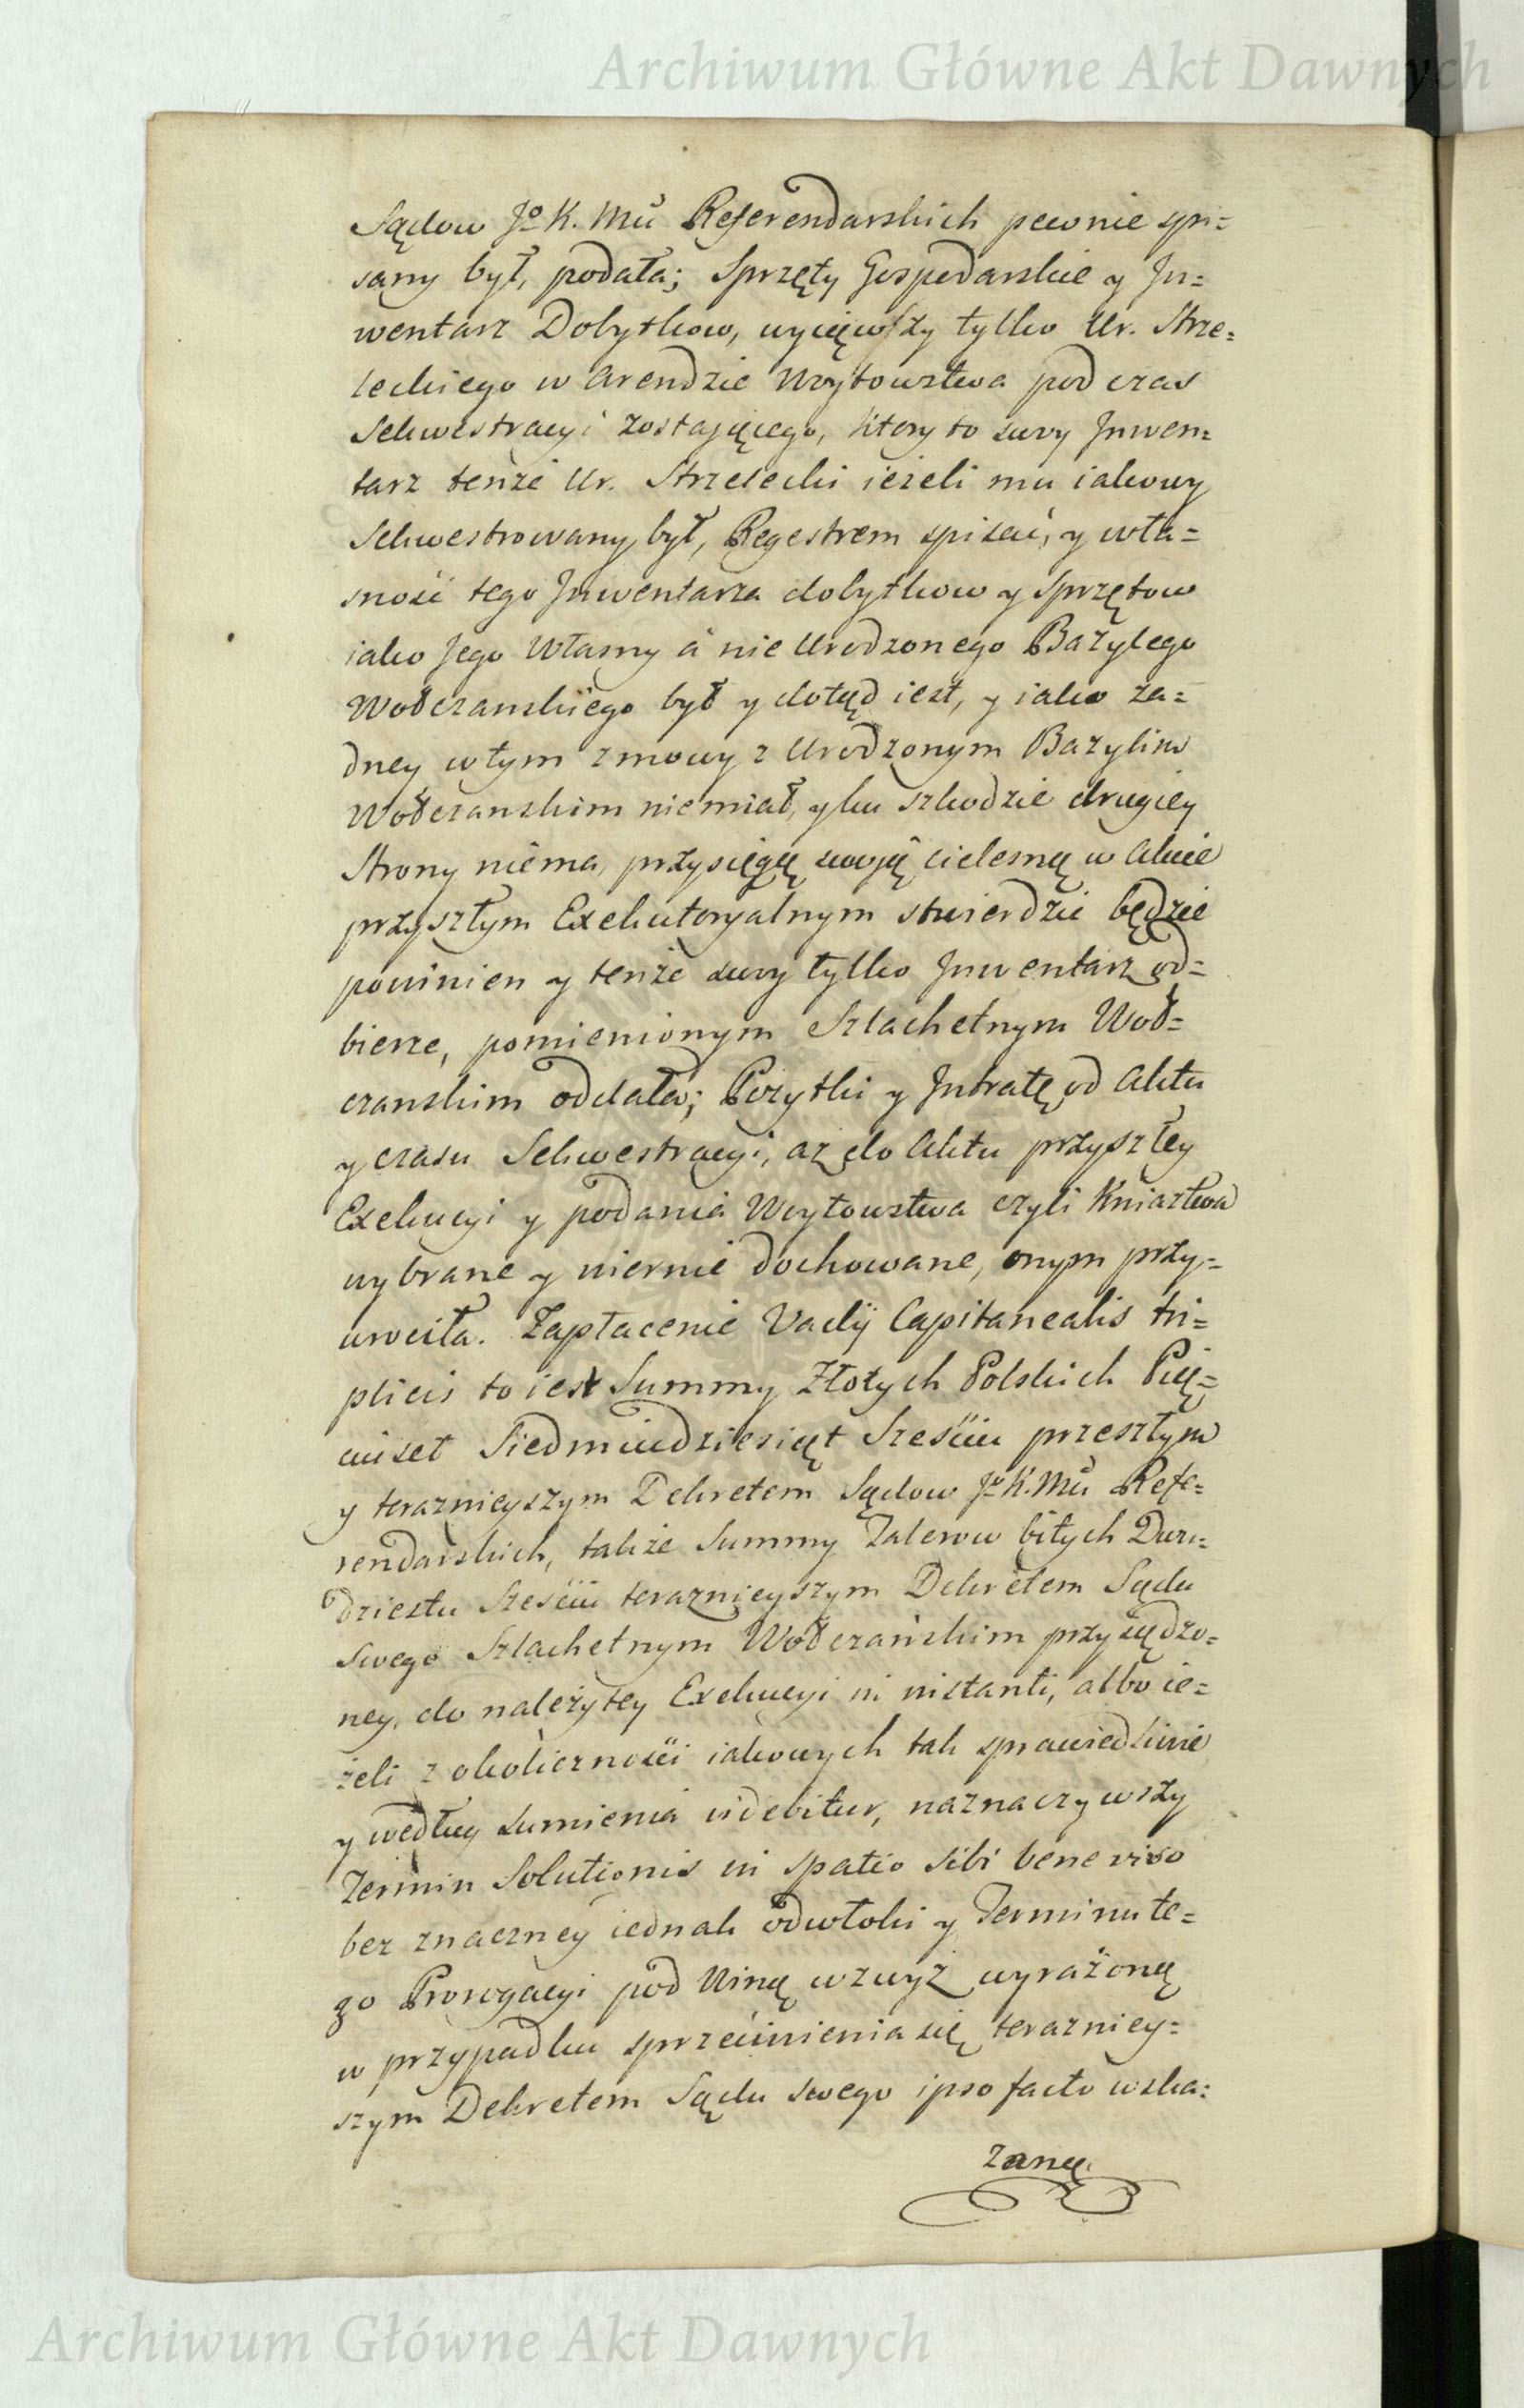 Archiwum Główne Akt Dawnych
Sądow Jº K. Mci Referendarskich pewnie spi=
sany był, podała; Sprzęty Gospodarskie y In=
wentarz Dobytkow, wyiąwszy tylko Ur. Strze=
leckiego w Arendzie Woytowstwa pod czas
Sekwestracyi zostaiącego, ktory to swoy Inwen=
tarz tenże Ur. Strzelecki ieżeli mu iakowy
Sekwestrowany był, Regestrem spisać, y wła=
sność tego Inwentarza dobytkow y Sprzętow
iako Jego Własny á nie Urodzonego Bazylego
Wołczanskiego był y dotąd iest, y iako ża=
dney w tym zmowy z Urodzonym Bazylim
Wołczanskim niemiał, y ku szkodzie drugiey
Strony niema, przysięgą swoią cielesną w Akcie
przyszłym Exekutoryalnym stwierdzić będzie
powinien y tenże swoy tylko Inwentarz od=
bierze, pomienionym Szlachetnym Woł=
czanskim oddała; Pożytki y Intratę od Aktu
y czasu Sekwestracyi, aż do Aktu przyszłey
Exekucyi y podania Woytowstwa czyli Kniaztwa
wybrane y wiernie dochowane, onym przy=
wrociła. Zapłacenie Vadij Capitanealis tri=
plicis to iest Summy Złotych Polskich Pię=
ciuset Siedmiudziesiąt Sześciu przeszłym
y teraznieyszym Dekretem Sądow Jº K. Mci Refe=
rendarskich, także Summy Talerow bitych Dwu=
dziestu Sześciu teraznieyszym Dekretem Sądu
Swego Szlachetnym Wołczańskim przysądzo=
ney, do należytey Exekucyi in instanti, albo ie=
żeli z okoliczności iakowych tak sprawiedliwie
y według sumienia videbitur, naznaczywszy
Termin Solutionis in spatio sibi bene viso
bez znaczney iednak odwłoki y Terminu te=
go Prorogacyi pod Winą wzwyż wyrażoną
w przypadku sprzeciwienia się terazniey=
szym Dekretem Sądu swego ipso facto wska=
zaną.
Archiwum Główne Akt Dawnych